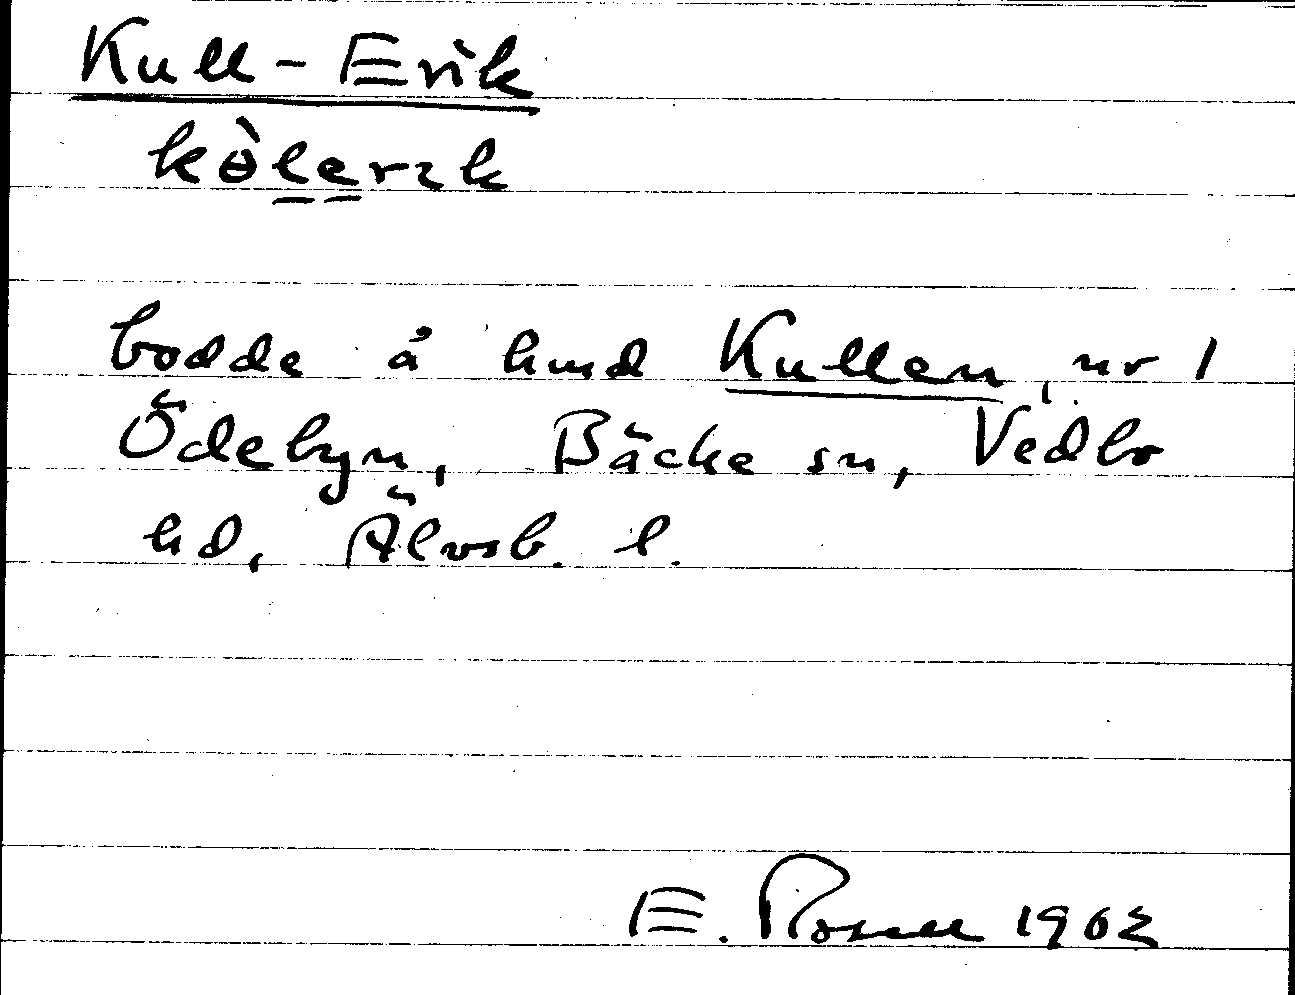 Kull-Erik
kɵ̀lerık
bodde å hmd Kullen, nr 1
Ödebyn, Bäcke sn, Vedbo
hd, Älvsb. l.
E. Rosell 1962